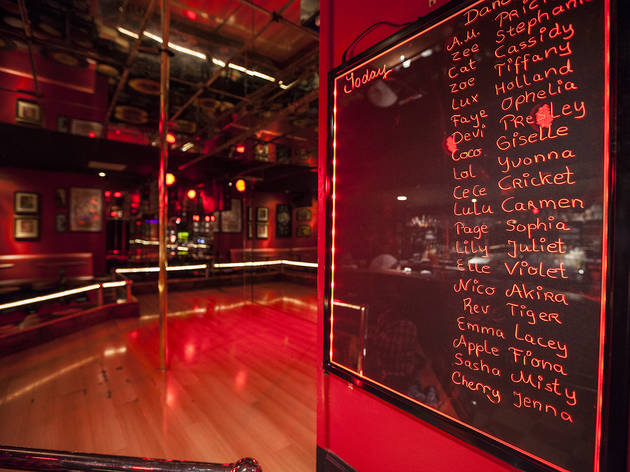 Today
A.M.
Zee Stephanie
Cat Cassidy
Zoe Tiffany
Lux Holland
Faye Ophelia
Devi PResLEY
Coco Giselle
Lol Yvonna
CeCe CRicket
LuLu CaRmen
Page Sophia
Lily Juliet
Elle Violet
Nico Akira
Rev TigeR
Emma Lacey
Apple Fiona
Sasha Misty
Cherry Jenna